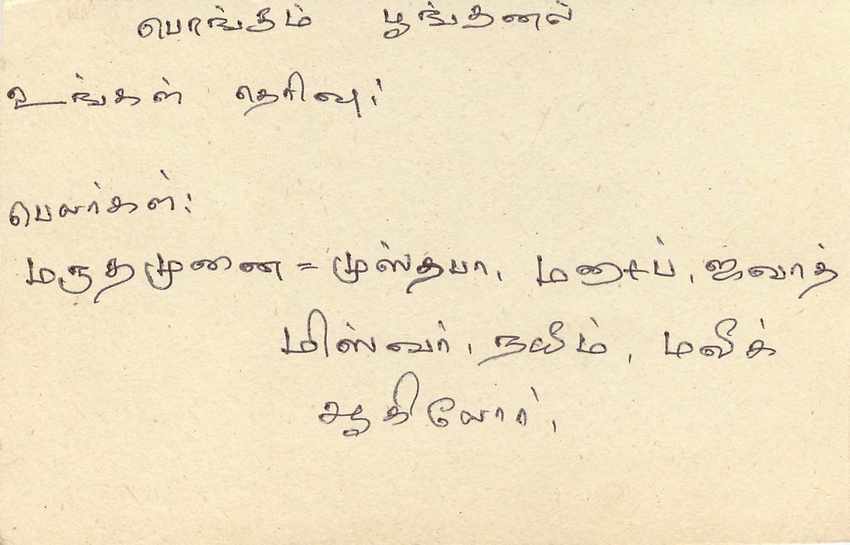 பொங்கும் பூங்தனல்
உங்கள் தெரிவு:
பெயர்கள்:
மருதமுனை = முஸ்தபா, மஹசுப், ஜவாத்
மிஸ்வர், நயீம், மலிக்
ஆகியோர்,